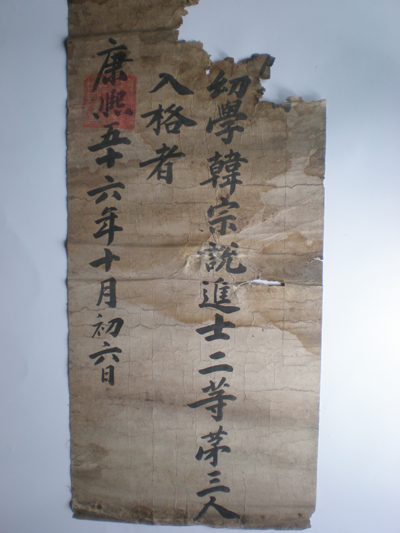 幼學韓宗說進士二等苐三人
入格者
康熙五十六年十月初六日